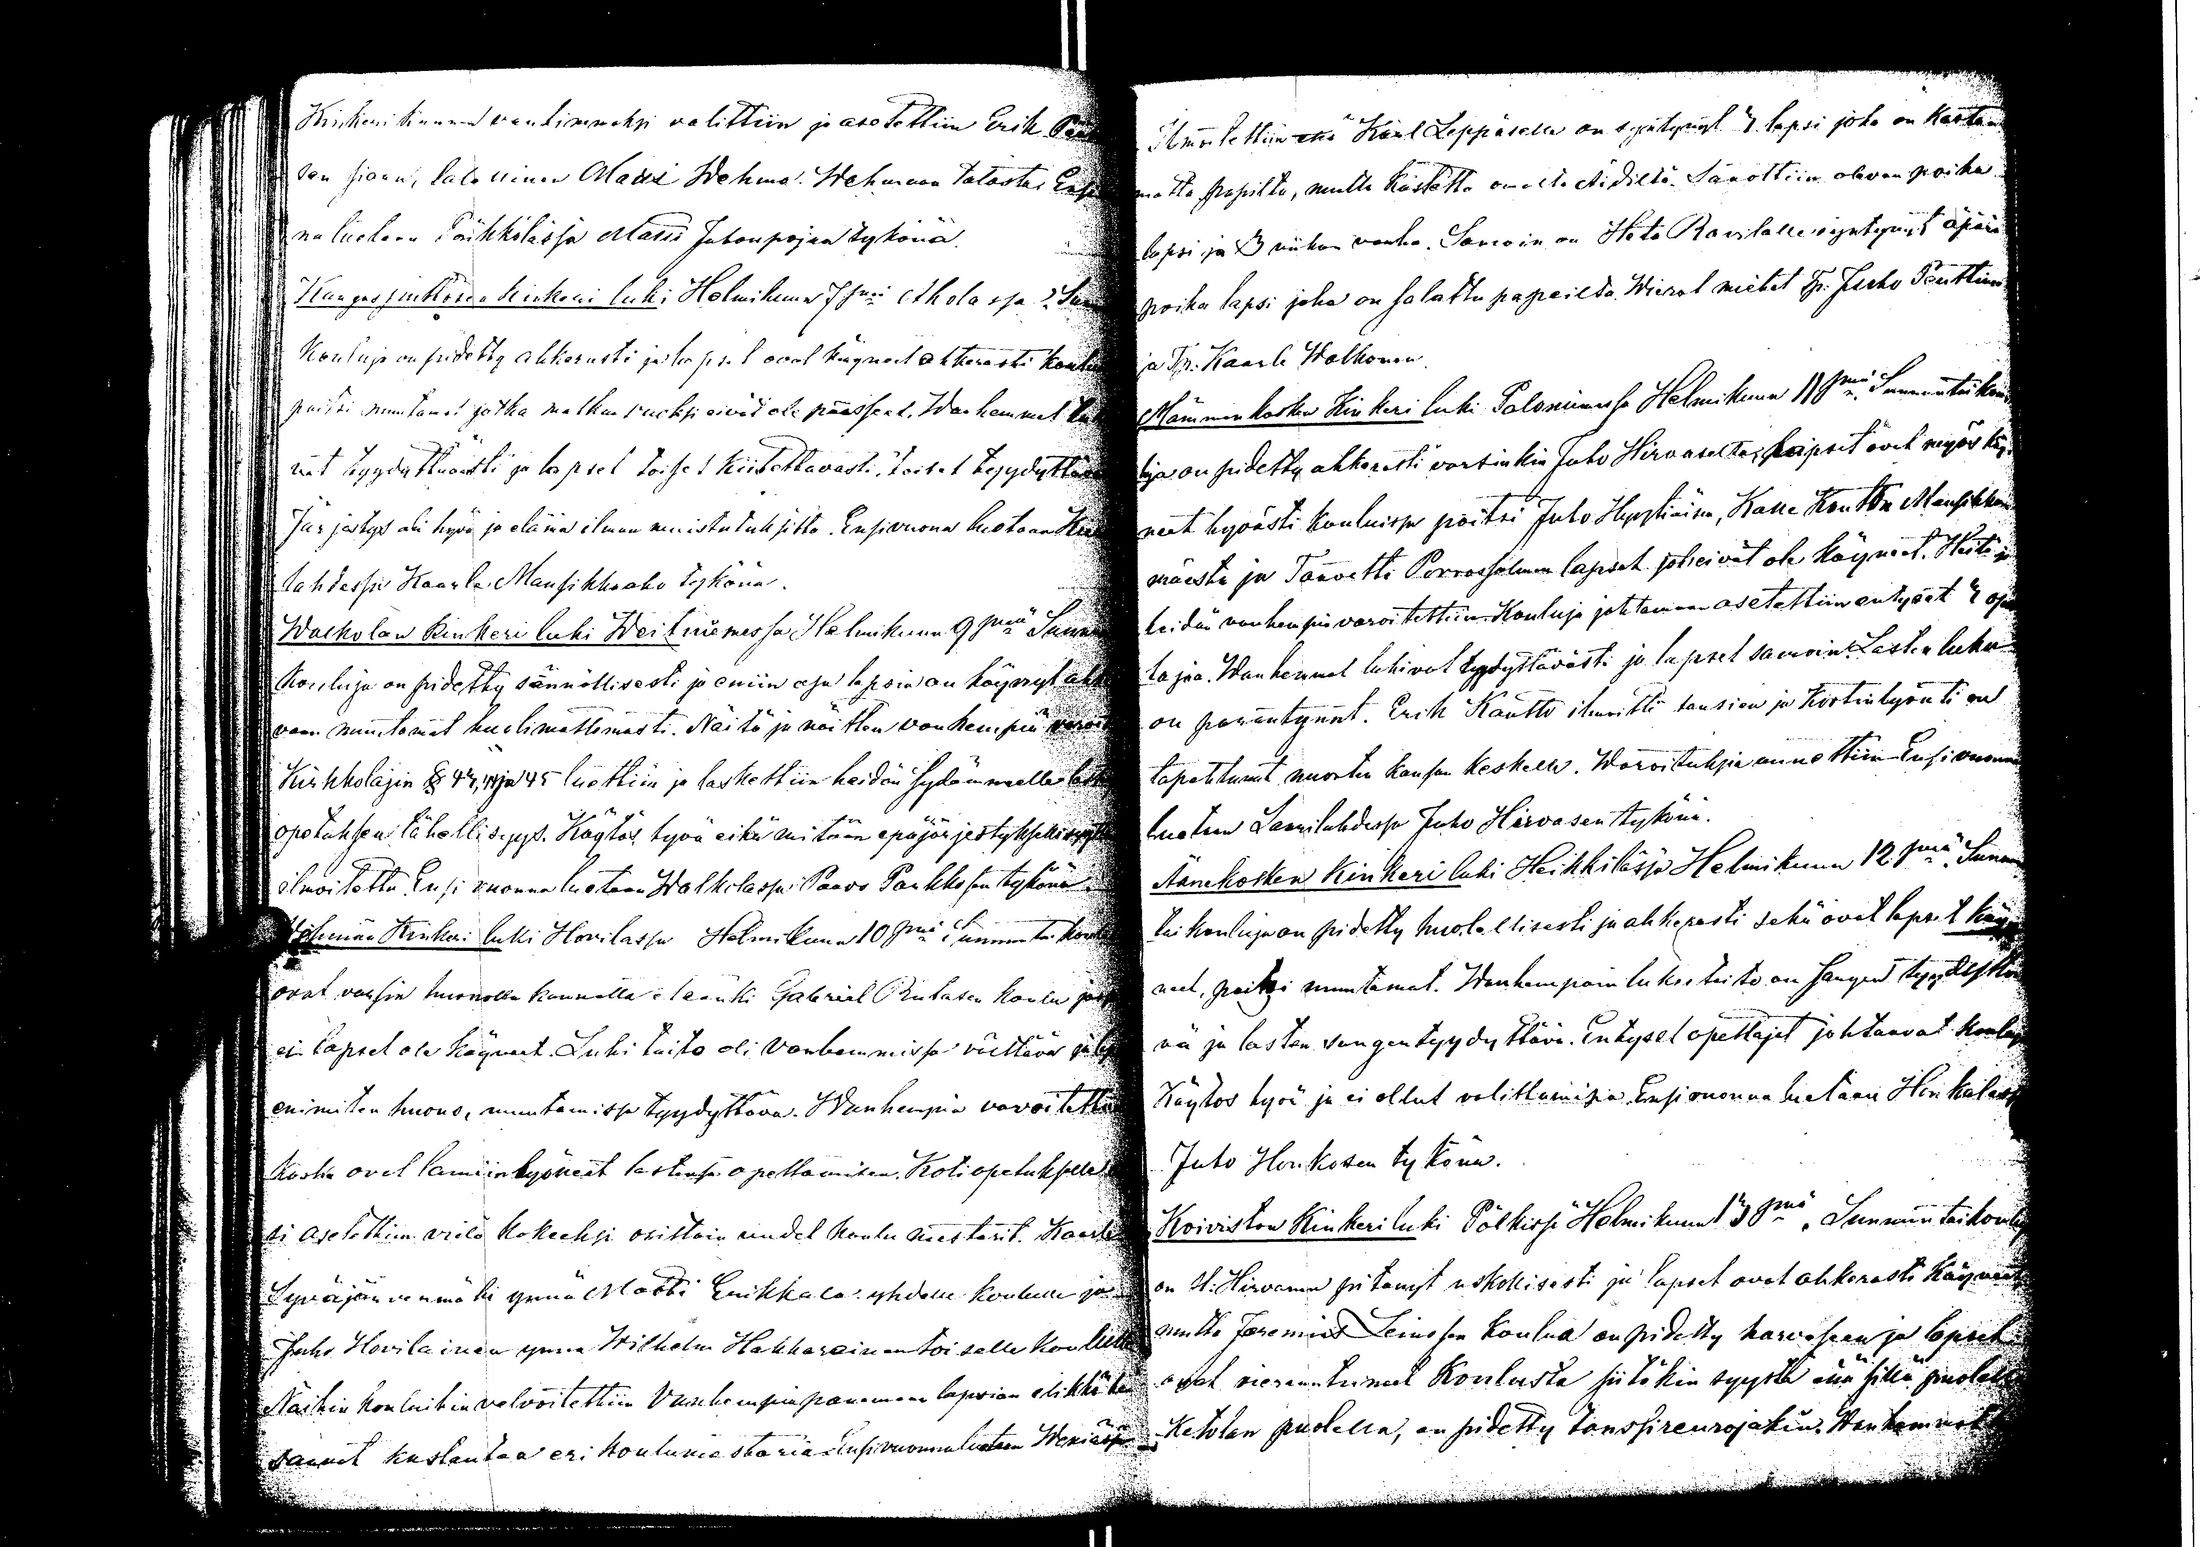 Kinkerikunnan vanhimmaksi valittiin ja asetettiin Erik
sen siaan, talollinen Matti Wehma. Wehmaan talosta.
na luetaan Pörkkölässä Matti Juhonpojan tykönä.
Kangasjintösen Kinkeri luki Helmikuun 7 pnä Aholassa
Kouluja on pidetty ahkerasti ja lapset ovat käyneet ahkerasti
paitsi muutamat jotka matkan vuoksi eivät ole päässeet. Wanhemmat
vat tyydyttävästi ja lapset toiset kiitettävästi, toiset
Järjestys oli hyvä ja elämä ilman muistutuksitta. Ensivuonna luetaan
lahdessa Kaarle Mansikkaaho tykönä.
Walkolan Kinkeri luki Weitniemessä Helmikuun 9 pnä
Kouluja on pidetty säännöllisesti ja eniin osa lapsia on käynyt
vaan muutamat huolimattomasti. Näitä ja näitten vanhempia
Kirkkolajin §§ 43, 44 ja 45 luettiin ja laskettiin heidän sydämmelle
opetuksen tähellisyys. Käytös hyvä eikä mitään
ilmoitettu. Ensi vuonna luetaan Walkolassa Paavo Parkkosen tykönä
Kinkeri luki Hovilassa Helmikuun 10 pnä
ovat varsin huonolla kannalla etenki Gabriel Rutasen koulu
ei lapset ole käyneet. Luki taito oli Vanhemmissa välttävä
enimiten huono, muutamissa tyydyttävä. Wanhempia varoitettiin
koska ovat laimiinlyöneet lastensa opettamisen. Kotiopetukselle
si asetettiin vielä kokeeksi osittain uudet koulumestarit. Kaarle
Syväjärvenmäki ynnä Matti Erikkala yhdelle koululle ja
Juho Hovilainen ynnä Wilhelm Hakkarainen toiselle koululle
Näihin kouluihin velvoitettiin Vanhempia panemaan lapsian elikkä
saavat kustantaa eri koulumestaria. Ensivuonna luetaan
Ilmoitettiin että Karl Leppäselle on syntynyt 1 lapsi joka on kasta
matta papilta, mutta kastettu omalta äidiltä. Sanottiin olevan poika
lapsi ja 3 viikon vanha. Samoin on Heta Ravilalle syntynyt äpärä
poika lapsi joka on salattu papeilta. Wierat miehet Tp. Jusho Penttinen
ja Tp. Kaarle Walkonen.
Mämmenkosken Kinkeri luki Paloniemessä Helmikuun 11 pnä. Sunnuntaikou
luja on pidetty ahkerasti varsinkin Juho Hirvaselta, Lapset ovat myös käy
neet hyvästi kouluissa paitsi Juho Hyytiäisen, Kalle Kautto Mansikka
mäestä ja Taavetti Porrassalmen lapset joh eivät ole käyneet. Heitä ja
heidän vanhempia varoitettiin. Kouluja johtamaan asetettiin entyset 4 opet
tajaa. Wanhemmat lukivat tyydyttävästi ja lapset samoin. Lasten luku
on parantynnt. Erik Kautto ilmoitti tansien ja kortinlyönti on
tapahtunut nuorten kansan keskellä. Waroituksia annettiin. Ensivuonna
luetaan Saarilahdessa Juho Hirvasen tykönä.
Äänekosken Kinkeri luki Heikkilässä Helmikuun 12 pnä. Sunnun
tai kouluja on pidetty huolellisesti ja ahkerasti sekä ovat lapset käy
neet, paitsi muutamat. Wanhempain luku taito on sangen tyydyttä
vä ja lasten sangen tyydyttävä. Entyset opettajat johtaavat kouluja
Käytös hyvä ja ei ollut valittamista. Ensivuonna luetaan Honkolassa
Juho Honkosen tykönä.
Koiviston Kinkeri luki Pölkissä Helmikuun 13 pnä. Sunnuntaikouluja
on H. Hirvanen pitänyt uskollisesti ja lapset ovat ahkerasti käyneet
mutta Jeremias Leinosen koulua on pidetty harvaseen ja lapset
ovat vieraantuneet koulusta siitäkin syystä että sillä puolella
Ketolan puolella, on pidetty tanssiseurojakin. Wanhemmat